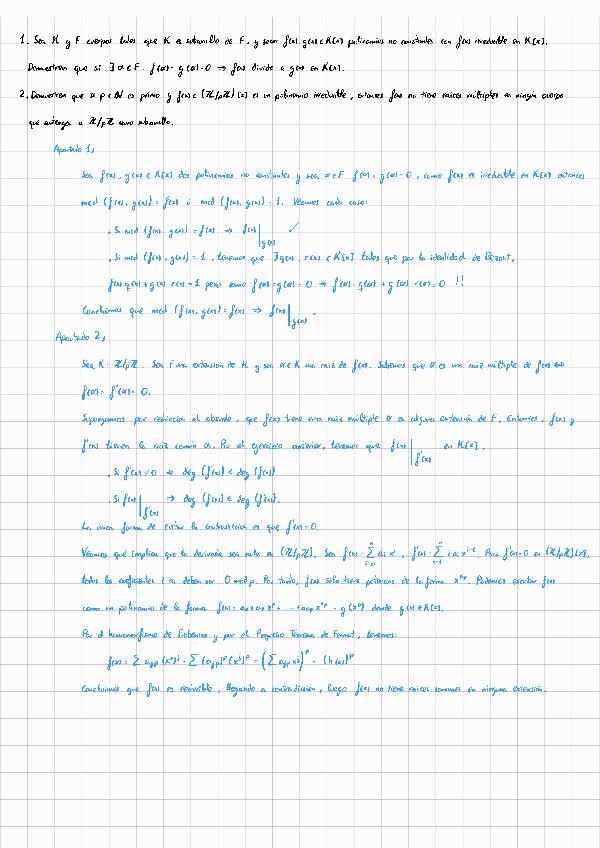 1. Sea K y F cuerpos tales que K es subanillo de F, y sean f(x), g(x) ∈ K[x] polinomios no constantes con f(x) irreducible en K[x].
Demuestren que si ∃ α ∈ F. f(α) = g(α) = 0 → f(x) divide a g(x) en K[x].
2. Demuestren que si p ∈ N es primo y f(x) ∈ (Z/pZ)[x] es un polinomio irreducible, entonces f(x) no tiene raíces múltiples en ningún cuerpo
que contenga a Z/pZ como subanillo.
Apartado 1,
Sea f(x), g(x) ∈ K[x] dos polinomios no constantes y sea α ∈ F f(α) = g(α) = 0, como f(x) es irreducible en K[x] entonces
mcd (f(x), g(x)) = f(x) ó mcd (f(x), g(x)) = 1. Veamos cada caso:
· Si mcd (f(x), g(x)) = f(x) → f(x) | g(x) ✓
· Si mcd (f(x), g(x)) = 1, tenemos que ∃ q(x), r(x) ∈ K[x] tales que por la identidad de Bézout,
f(x) q(x) + g(x) r(x) = 1 pero como f(α) = g(α) = 0 → f(α) · q(α) + g(α) r(α) = 0 !!
Concluimos que mcd (f(x), g(x)) = f(x) → f(x) | g(x).
Apartado 2,
Sea K = Z/pZ. Sea F una extensión de K y sea α ∈ K una raíz de f(x). Sabemos que α es una raíz múltiple de f(x) ⇔
f(α) = f'(α) = 0.
Supongamos por reducción al absurdo, que f(x) tiene una raíz múltiple α en alguna extensión de F. Entonces, f(x) y
f'(x) tienen la raíz común α. Por el ejercicio anterior, tenemos que f(x) | f'(x) en K[x].
· Si f'(x) ≠ 0 → deg (f'(x)) < deg (f(x))
· Si f(x) | f'(x) → deg (f(x)) < deg (f'(x)).
La única forma de evitar la contradicción es que f'(x) = 0.
Veamos qué implica que la derivada sea nula en (Z/pZ). Sea f(x) = ∑ᵢ₌₀ⁿ aᵢ xⁱ, f'(x) = ∑ᵢ₌₁ⁿ i aᵢ xⁱ⁻¹. Para f'(x) = 0 en (Z/pZ)[x],
todos los coeficientes i aᵢ deben ser 0 mod p. Por tanto, f(x) solo tiene potencias de la forma xᵏᵖ. Podemos escribir f(x)
como un polinomio de la forma f(x) = a₀ + aₚ xᵖ + ... + aₙₚ xⁿᵖ = g(xᵖ) donde g(x) ∈ K[x].
Por el homomorfismo de Frobenius y por el Pequeño Teorema de Fermat, tenemos:
f(x) = ∑ aⱼₚ (xᵖ)ʲ = ∑ (aⱼₚ)ᵖ (xʲ)ᵖ = (∑ aⱼₚ xʲ)ᵖ = (h(x))ᵖ
Concluimos que f(x) es reducible, llegando a contradicción, luego f(x) no tiene raíces comunes en ninguna extensión.